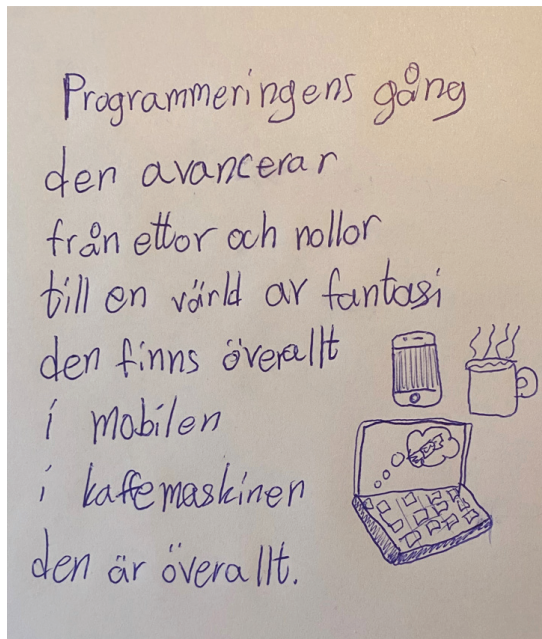 Programmeringens gång
den avancerar
från ettor och nollor
till en värld av fantasi
den finns överallt
i mobilen
i kaffemaskinen
den är överallt.